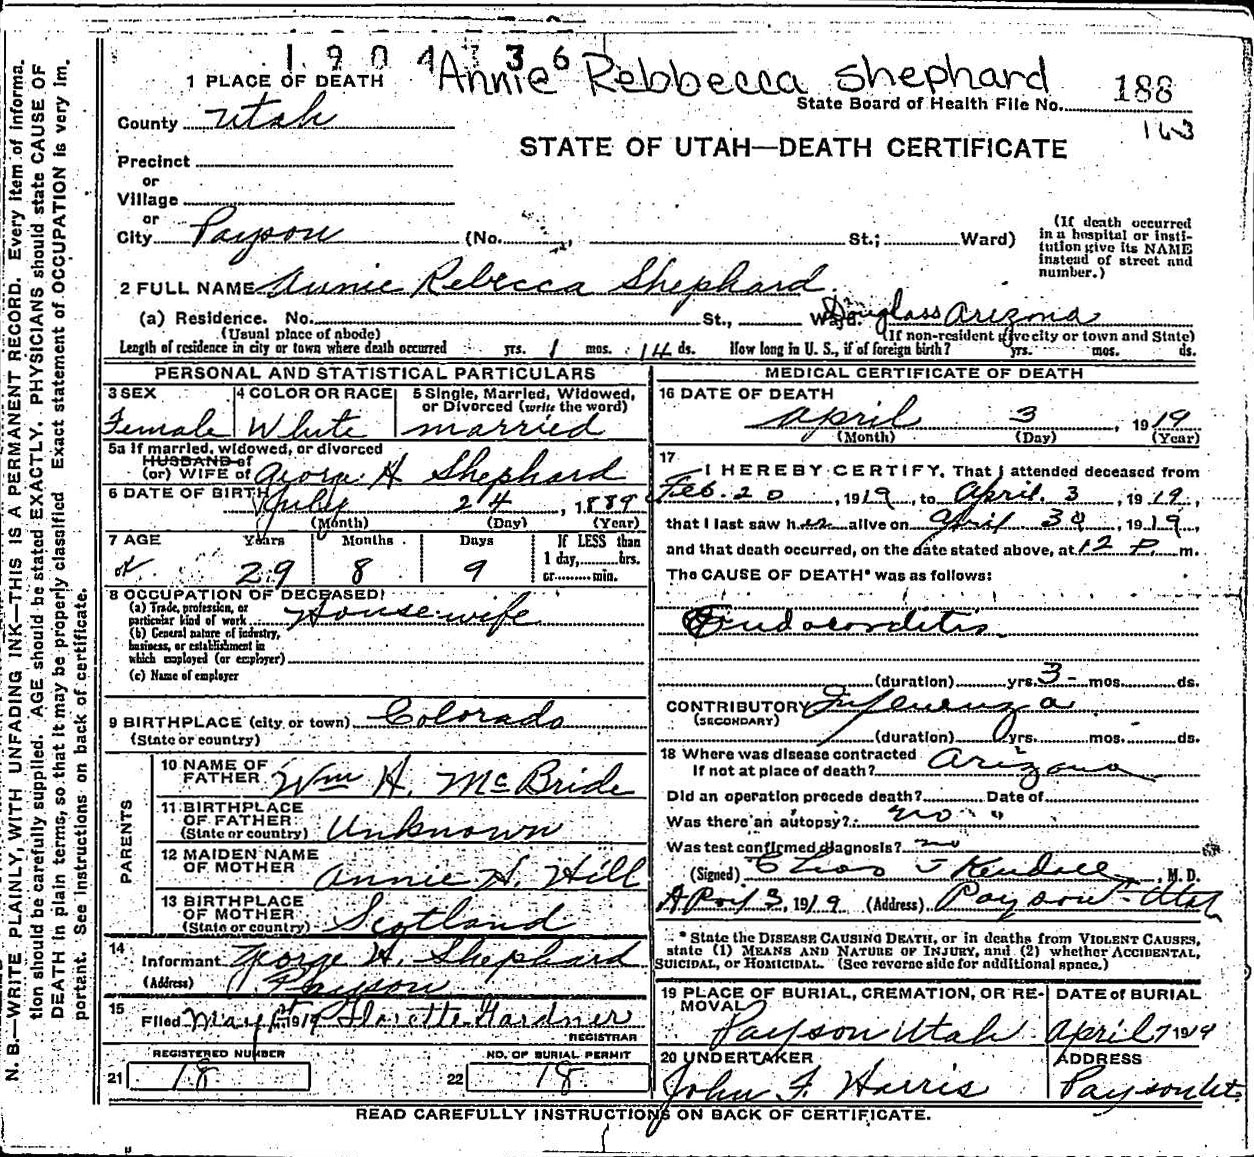 1904336
Annie Rebbecca Shephard
1 PLACE OF DEATH
State Board of Health File No. 188
163
County Utah
STATE OF UTAH—DEATH CERTIFICATE
Precinct
or
Village
or
City Payson (No. St.; Ward)
(If death occurred in a hospital or insti-
tution give its NAME
instead of street and
number.)
2 FULL NAME Annie Rebecca Shephard
(a) Residence. No. St., Ward. Douglass Arizona
(Usual place of abode) (If non-resident give city or town and State)
Length of residence in city or town where death occurred yrs. 1 mos. 14 ds. How long in U. S., if of foreign birth? yrs. mos. ds.
PERSONAL AND STATISTICAL PARTICULARS
3 SEX Female
4 COLOR OR RACE White
5 Single, Married, Widowed,
or Divorced (write the word)
married
5a If married, widowed, or divorced
HUSBAND of
(or) WIFE of George H Shephard
6 DATE OF BIRTH July 24, 1889
(Month) (Day) (Year)
7 AGE Years Months Days If LESS than
1 day, hrs.
or min.
29 8 9
8 OCCUPATION OF DECEASED
(a) Trade, profession, or
particular kind of work Housewife
(b) General nature of industry,
business, or establishment in
which employed (or employer)
(c) Name of employer
9 BIRTHPLACE (city or town) Colorado
(State or country)
PARENTS
10 NAME OF
FATHER Wm H. McBride
11 BIRTHPLACE
OF FATHER
(State or country) Unknown
12 MAIDEN NAME
OF MOTHER Annie H. Hill
13 BIRTHPLACE
OF MOTHER
(State or country) Scotland
14 Informant George H. Shephard
(Address) Payson
15 Filed May 1919 Florette Gardner
REGISTRAR
REGISTERED NUMBER
21 18
NO. OF BURIAL PERMIT
22 18
MEDICAL CERTIFICATE OF DEATH
16 DATE OF DEATH
April 3, 1919
(Month) (Day) (Year)
17 I HEREBY CERTIFY, That I attended deceased from
Feb. 20, 1919, to April. 3, 1919,
that I last saw her alive on April 3d, 1919,
and that death occurred, on the date stated above, at 12 P. m.
The CAUSE OF DEATH* was as follows:
Endocarditis
(duration) yrs. 3 mos. ds.
CONTRIBUTORY Influenza
(SECONDARY)
(duration) yrs. mos. ds.
18 Where was disease contracted
If not at place of death? Arizona
Did an operation precede death? Date of
Was there an autopsy? no "
Was test confirmed diagnosis? no
(Signed) Kendall, M. D.
April 3, 1919 (Address) Payson - Utah
* State the DISEASE CAUSING DEATH, or in deaths from VIOLENT CAUSES,
state (1) MEANS AND NATURE OF INJURY, and (2) whether ACCIDENTAL,
SUICIDAL, or HOMICIDAL. (See reverse side for additional space.)
19 PLACE OF BURIAL, CREMATION, OR RE-
MOVAL
Payson Utah
DATE of BURIAL
April 7 1919
20 UNDERTAKER
John F. Harris
ADDRESS
Payson Ut.
READ CAREFULLY INSTRUCTIONS ON BACK OF CERTIFICATE.
N. B.—WRITE PLAINLY, WITH UNFADING INK—THIS IS A PERMANENT RECORD. Every item of informa-
tion should be carefully supplied. AGE should be stated EXACTLY. PHYSICIANS should state CAUSE OF
DEATH in plain terms, so that it may be properly classified Exact statement of OCCUPATION is very im-
portant. See instructions on back of certificate.